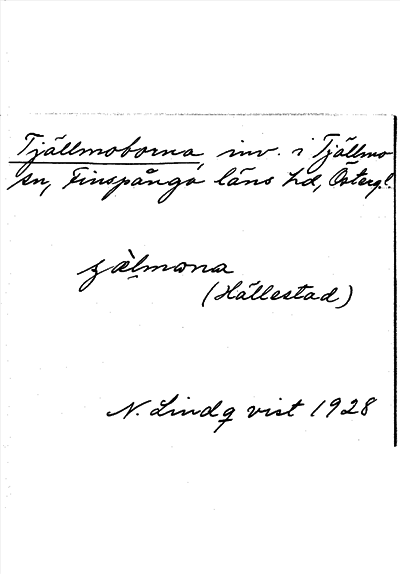 Tjällmoborna, inv. i Tjällmo
sn, Finspånga läns hd, Österg!.
(Hällestad)
N. Lindqvist 1928